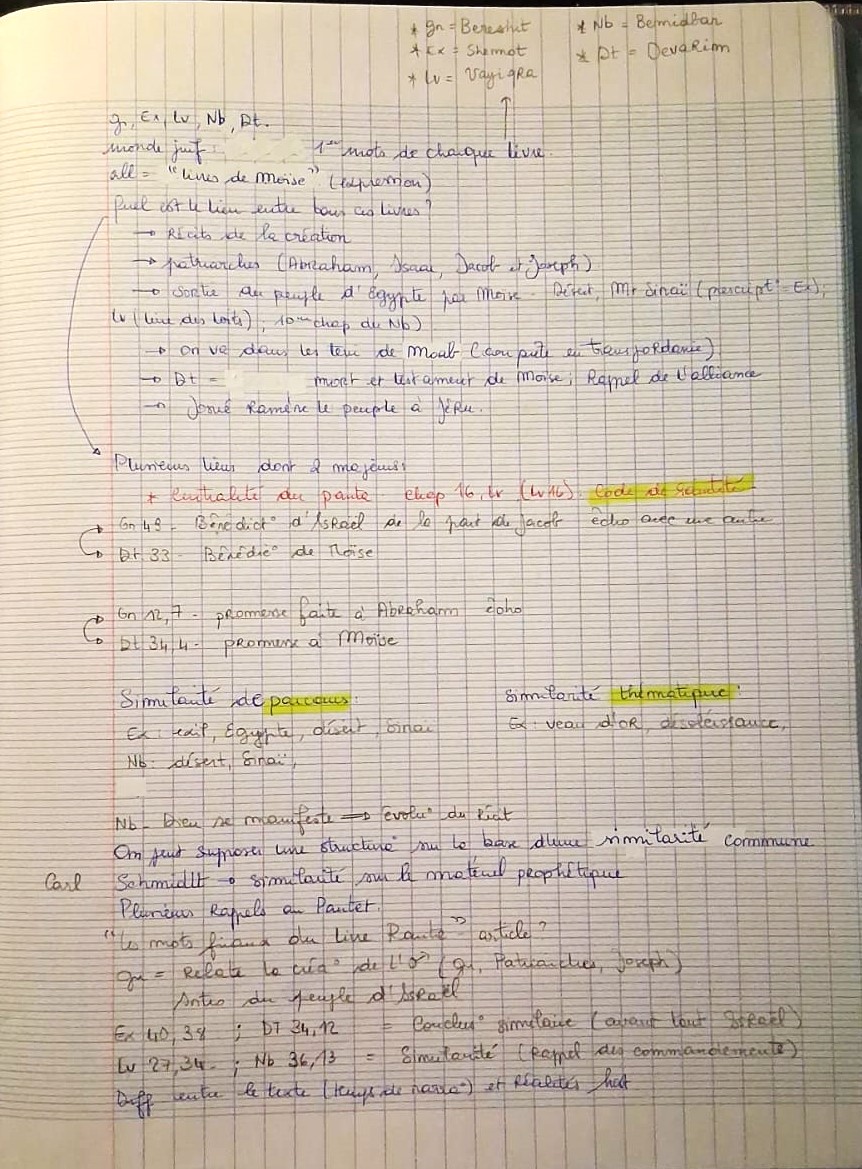 * gn = Bereshit
* Ex = Shemot
* Lv = Vayiqra
* Nb = Bemidbar
* Dt = Devarim
gn, Ex, Lv, Nb, Dt.
monde juif : 1ers mots de chaque livre.
all = "livres de Moïse" (expression)
Quel est le lien entre tous ces livres ?
→ Récits de la création
→ patriarches (Abraham, Isaac, Jacob et Joseph)
→ Sortie du peuple d'Egypte par Moïse - Désert, Mt Sinaï (prescript° = Ex);
Lv (livre des lois), 10ème chap du Nb)
→ on va dans les terres de Moab (conquête en transjordanie)
→ Dt = mort et testament de Moïse; Rappel de l'alliance
→ Josué Ramène le peuple à Jéru.
Plusieurs liens dont 2 majeurs:
* Centralité du pante chap 16, Lv (Lv16). Code de Sainteté
Gn 49 - Bénédict° d'Israël de la part de Jacob écho avec une autre
Dt 33 - Bénédic° de Moïse
Gn 12,7 - promesse faite à Abraham écho
Dt 34,4 - promesse à Moïse
Similarité de parcours :
Ex : exil, Egypte, désert, Sinaï
Nb : désert, Sinaï,
Similarité thématique :
Ex : veau d'OR, désobéissance,
Nb - Dieu se manifeste ⇒ évolu° du Récit
On peut supposer une structure sur la base d'une similarité commune
Carl Schmidtt → similarité sur le matériel prophétique
Plusieurs Rappels au Pantet.
"Les mots finaux du livre Rante" article ?
gn = Relate la créa° de l'O° (gn, Patriarches, Joseph)
Antes du peuple d'Israël
Ex 40,38 ; DT 34,12 = Conclus° similaire (avant tout Israël)
Lv 27,34 - ; Nb 36,13 = Similarité (Rappel des commandements)
Diff entre le texte (temps de narra°) et Réalités hist